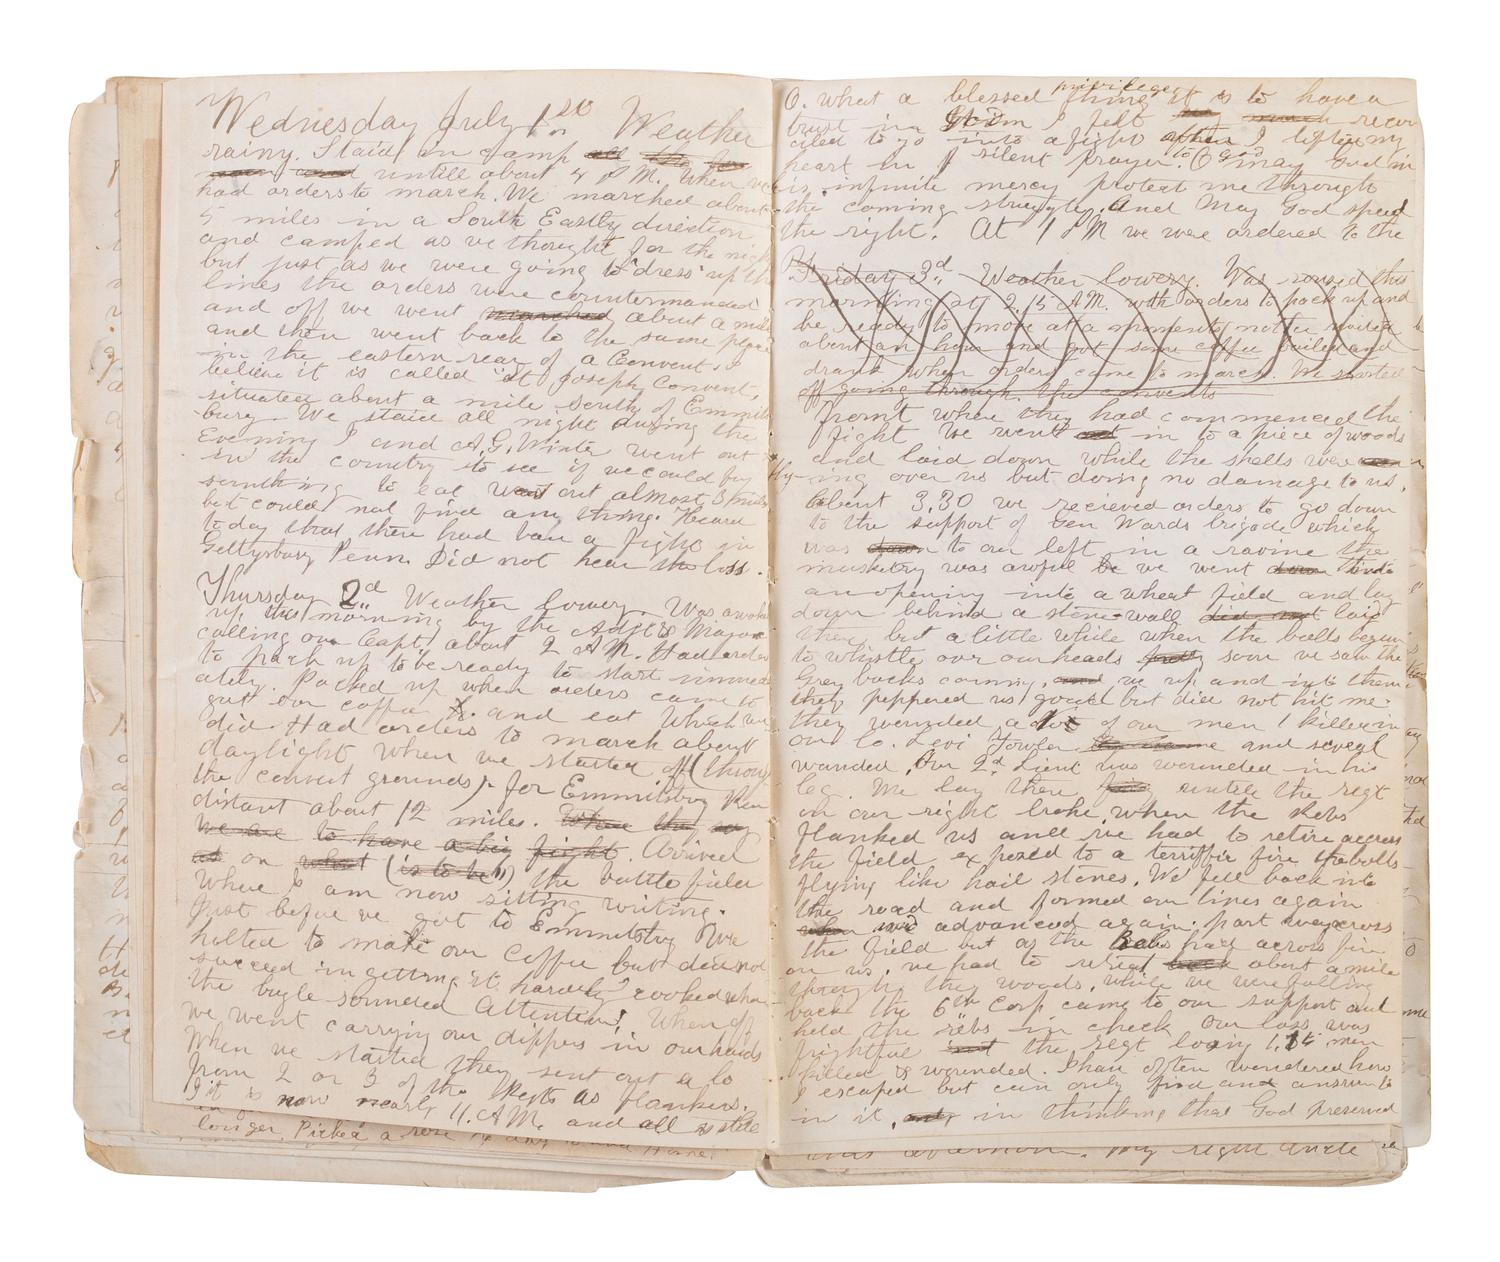 Wednesday July 1st Weather
rainy. Staid in camp all the for
noon and untill about 4 P.M. when we
had orders to march. We marched about
5 miles in a South Eastly direction
and camped as we thought for the nigh
but just as we were going to "dress" up the
lines the orders were countermanded
and off we went marched about a mile
and then went back to the same place
in the eastern rear of a Convent. I
believe it is called "St Joseph Convent,
situated about a mile south of Emmits
burg. We staied all night during the
Evening I and A.G. Winter went out
in the country to see if we could buy
something to eat Went out almost 3 miles
but could not find any thing. Heard
today that there had ban a fight in
Gettysburg Penn. Did not hear the loss.
Thursday 2d Weather lowery. Was awoke
up this morning by the Adjt & Major
calling our Capt. about 2 A.M. Had orders
to pack up to be ready to start immedi
ately. Packed up when orders came to
get our coffee & and eat which we
did. Had orders to march about
daylight when we started off (throug
the convent grounds) for Emmitsburg Pen
distant about 12 miles. Where they say
we are to have a big fight. Arrived
as on what (is to be") the battle field
where I am now sitting writing.
Just before we got to Emmitsburg We
halted to make our coffee but did not
succeed in getting it hardly cooked when
the bugle sounded Attention! When off
we went carrying our dippers in our hands
When we started they sent out a Co
from 2 or 3 of the Regts as flankers.
I it is now nearly 11. A.M. and all is still
longer. Picked a rose
O. what a blessed thing privilege it is to have a
trust in God in I felt much recon
ciled to go into a fight after I lifted my
heart in silent prayer to God. O may God in
is infinite mercy protect me through
the coming struggle. And May God speed
the right. At 1 P M we were ordered to the
Friday 3d Weather lowery. Was roused this
morning at 2.15 A.M. with orders to pack up and
be ready to move at a moments notice waited
about an hour and got some coffee boiled and
drank when orders came to march. We started
off going through the convents
point where they had commenced the
fight We went out in to a piece of woods
and laid down while the shells were
fly-ing over us but doing no damage to us.
About 3.30 we recieved orders to go down
to the support of Gen Wards brigade which
was down to our left in a ravine the
musketry was awful be we went down
an opening into a wheat field and lay
down behind a stone-wall did not laid
there but a little while when the balls begun
to whistle over our heads pretty soon we saw the
Grey backs coming, and we up and into them
they peppered us good but did not hit me.
they wounded a lot of our men 1 killed in
our Co. Levi Fowler and severl
wounded, Our 2d Lieut was wounded in his
leg. We lay there untile the regt
on our right broke when the Rebs
flanked us and we had to retire across
the field exposed to a terriffic fire the balls
flying like hail stones. We fell back into
the road and formed our lines again
when we advanced again part way across
the field but as the Rebs had across fire
on us, we had to retreat back about a mile
through the woods, while we were falling
back the 6th Corp came to our support and
held the rebs in check Our loss was
frightful the regt losing men
killed & wounded. I have often wondered how
I escaped but can only find and answer to
in it, in thinking that God preserved
this afternoon. My right ancle